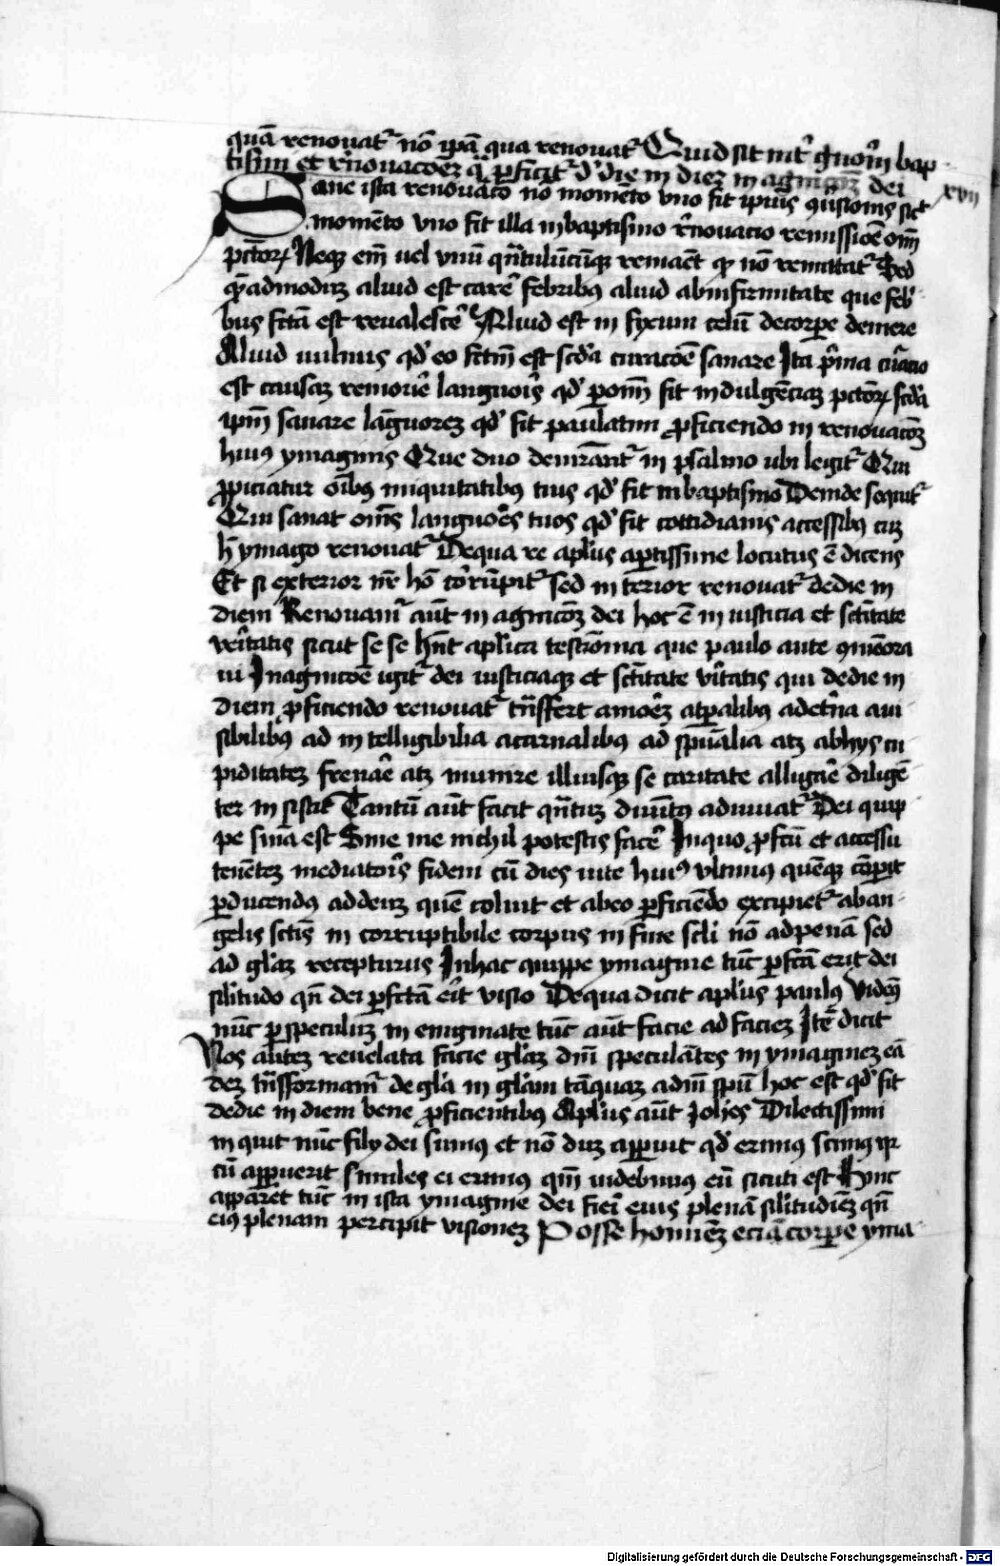 quā renouat᷑ nō ip̄a qua renouat᷑ Quid sit int᷑ gn̄oīm bap-
tismi et r̄nouac̄oēz q̄ ꝑficit᷑ d̓ die in diez in agnic̄oēz dei
Sane ista renouac̄o nō momēto vno fit ip̄ius ꝯuīsionis sic̄ xvij
momēto vno fit illa in baptismo r̄nouacio remissiōe om̄
pc̄torꝝ Neqꝫ em̄ uel vnū qn̄tulūcūqꝫ remaēt qd̓ nō remittat᷑ Sed
qͣ̄admoduz aliud est carē febribꝯ aliud ab infirmitate que feb̓-
bus fc̄ta est reualescē Aliud est in fixum telū de corꝑe demere
Aliud uulnus qd̓ eo fc̄tm̄ est sc̄da curac̄oē sanare Ita p̄ma cūacio
est causaz remouē languoīs qd̓ ꝑ om̄ fit indulgēciaz pc̄torꝝ sc̄da
ip̄m sanare lāguorez qd̓ fit paulatim ꝓficiendo in renouac̄oēz
huiꝯ ymaginis Que duo demr̄ant᷑ in psalmo ubi legit᷑ Qui
ꝓpiciatur oībꝯ iniquitatibꝯ tuis qd̓ fit in baptismo Deinde sequit᷑
Qui sanat om̄s languoēs tuos qd̓ fit cottidianis accessibꝯ cuz
h̄ ymago renouat᷑ De qua re apl̄us aꝑtissime locutus ē dicens
Et si exterior nr̄ hō cōrūpit᷑ sed in terior renouat᷑ de die in
diem Renouam᷑ aūt in agnic̄oēz dei hoc ē in iusticia et sc̄titate
v̓itatis sicut se se hn̄t aplica testīōnia que paulo ante ꝯmēora
ui In agnic̄oē igit᷑ dei iusticiaqꝫ et sc̄titate v̓itatis qui de die in
diem ꝓficiendo renouat᷑ tn̄sfert amoēz a tꝑalibꝯ ad et̓na a ui
sibilibꝯ ad in telligibilia a carnalibꝯ ad spūalia atqꝫ ab hys cu
piditatez frenāe atqꝫ minuere illiusqꝫ se caritate alligāe diligē
ter in sistit Tantū aūt facit qn̄tuz diuinitꝯ adiuuat᷑ Dei quip
pe sn̄ia est Sine me nichil potestis facē In quo ꝓfc̄u et accessu
tenētez mediatoīs fidem cū dies uite huiꝯ vltimꝯ quēqꝫ cōꝑit
ꝑducendꝯ ad deuz quē coluit et ab eo ꝑficiēdo excipiet᷑ ab an-
gelis sc̄tis in corruptibile corpus in fine sc̄li nō ad penā sed
ad gl̄az recepturus In hac quippe ymagine tūc ꝑfc̄a erit dei
sil̄itudo qn̄ dei ꝑfc̄ta eīt visio De qua dicit apl̄us paulꝯ Videm̄
nūc ꝑ speculuz in enigmate tūc aūt facie ad faciez Itē dicit
Nos autez reuelata facie gl̄az dn̄i speculātes in ymaginez eā
dez tn̄sformam᷑ de gl̄a in gl̄am tāquaz a dn̄i spū hoc est qd̓ fit
de die in diem bene ꝓficientibꝯ Apl̄us aūt Joh̄es Dilectissimi
inquit nūc filij dei sumꝯ et nō duz apparuit qd̓ erimꝯ scimꝯ qr
cū apparuerit similes ei erimꝯ qm̄ uidebimꝯ eū sicuti est Hinc
apparet tūc in ista ymagine dei fieī eius plenā sil̄itudiēz qn̄
eiꝯ plenam percipit visionez Posse hominēz eciā corꝑe yma-